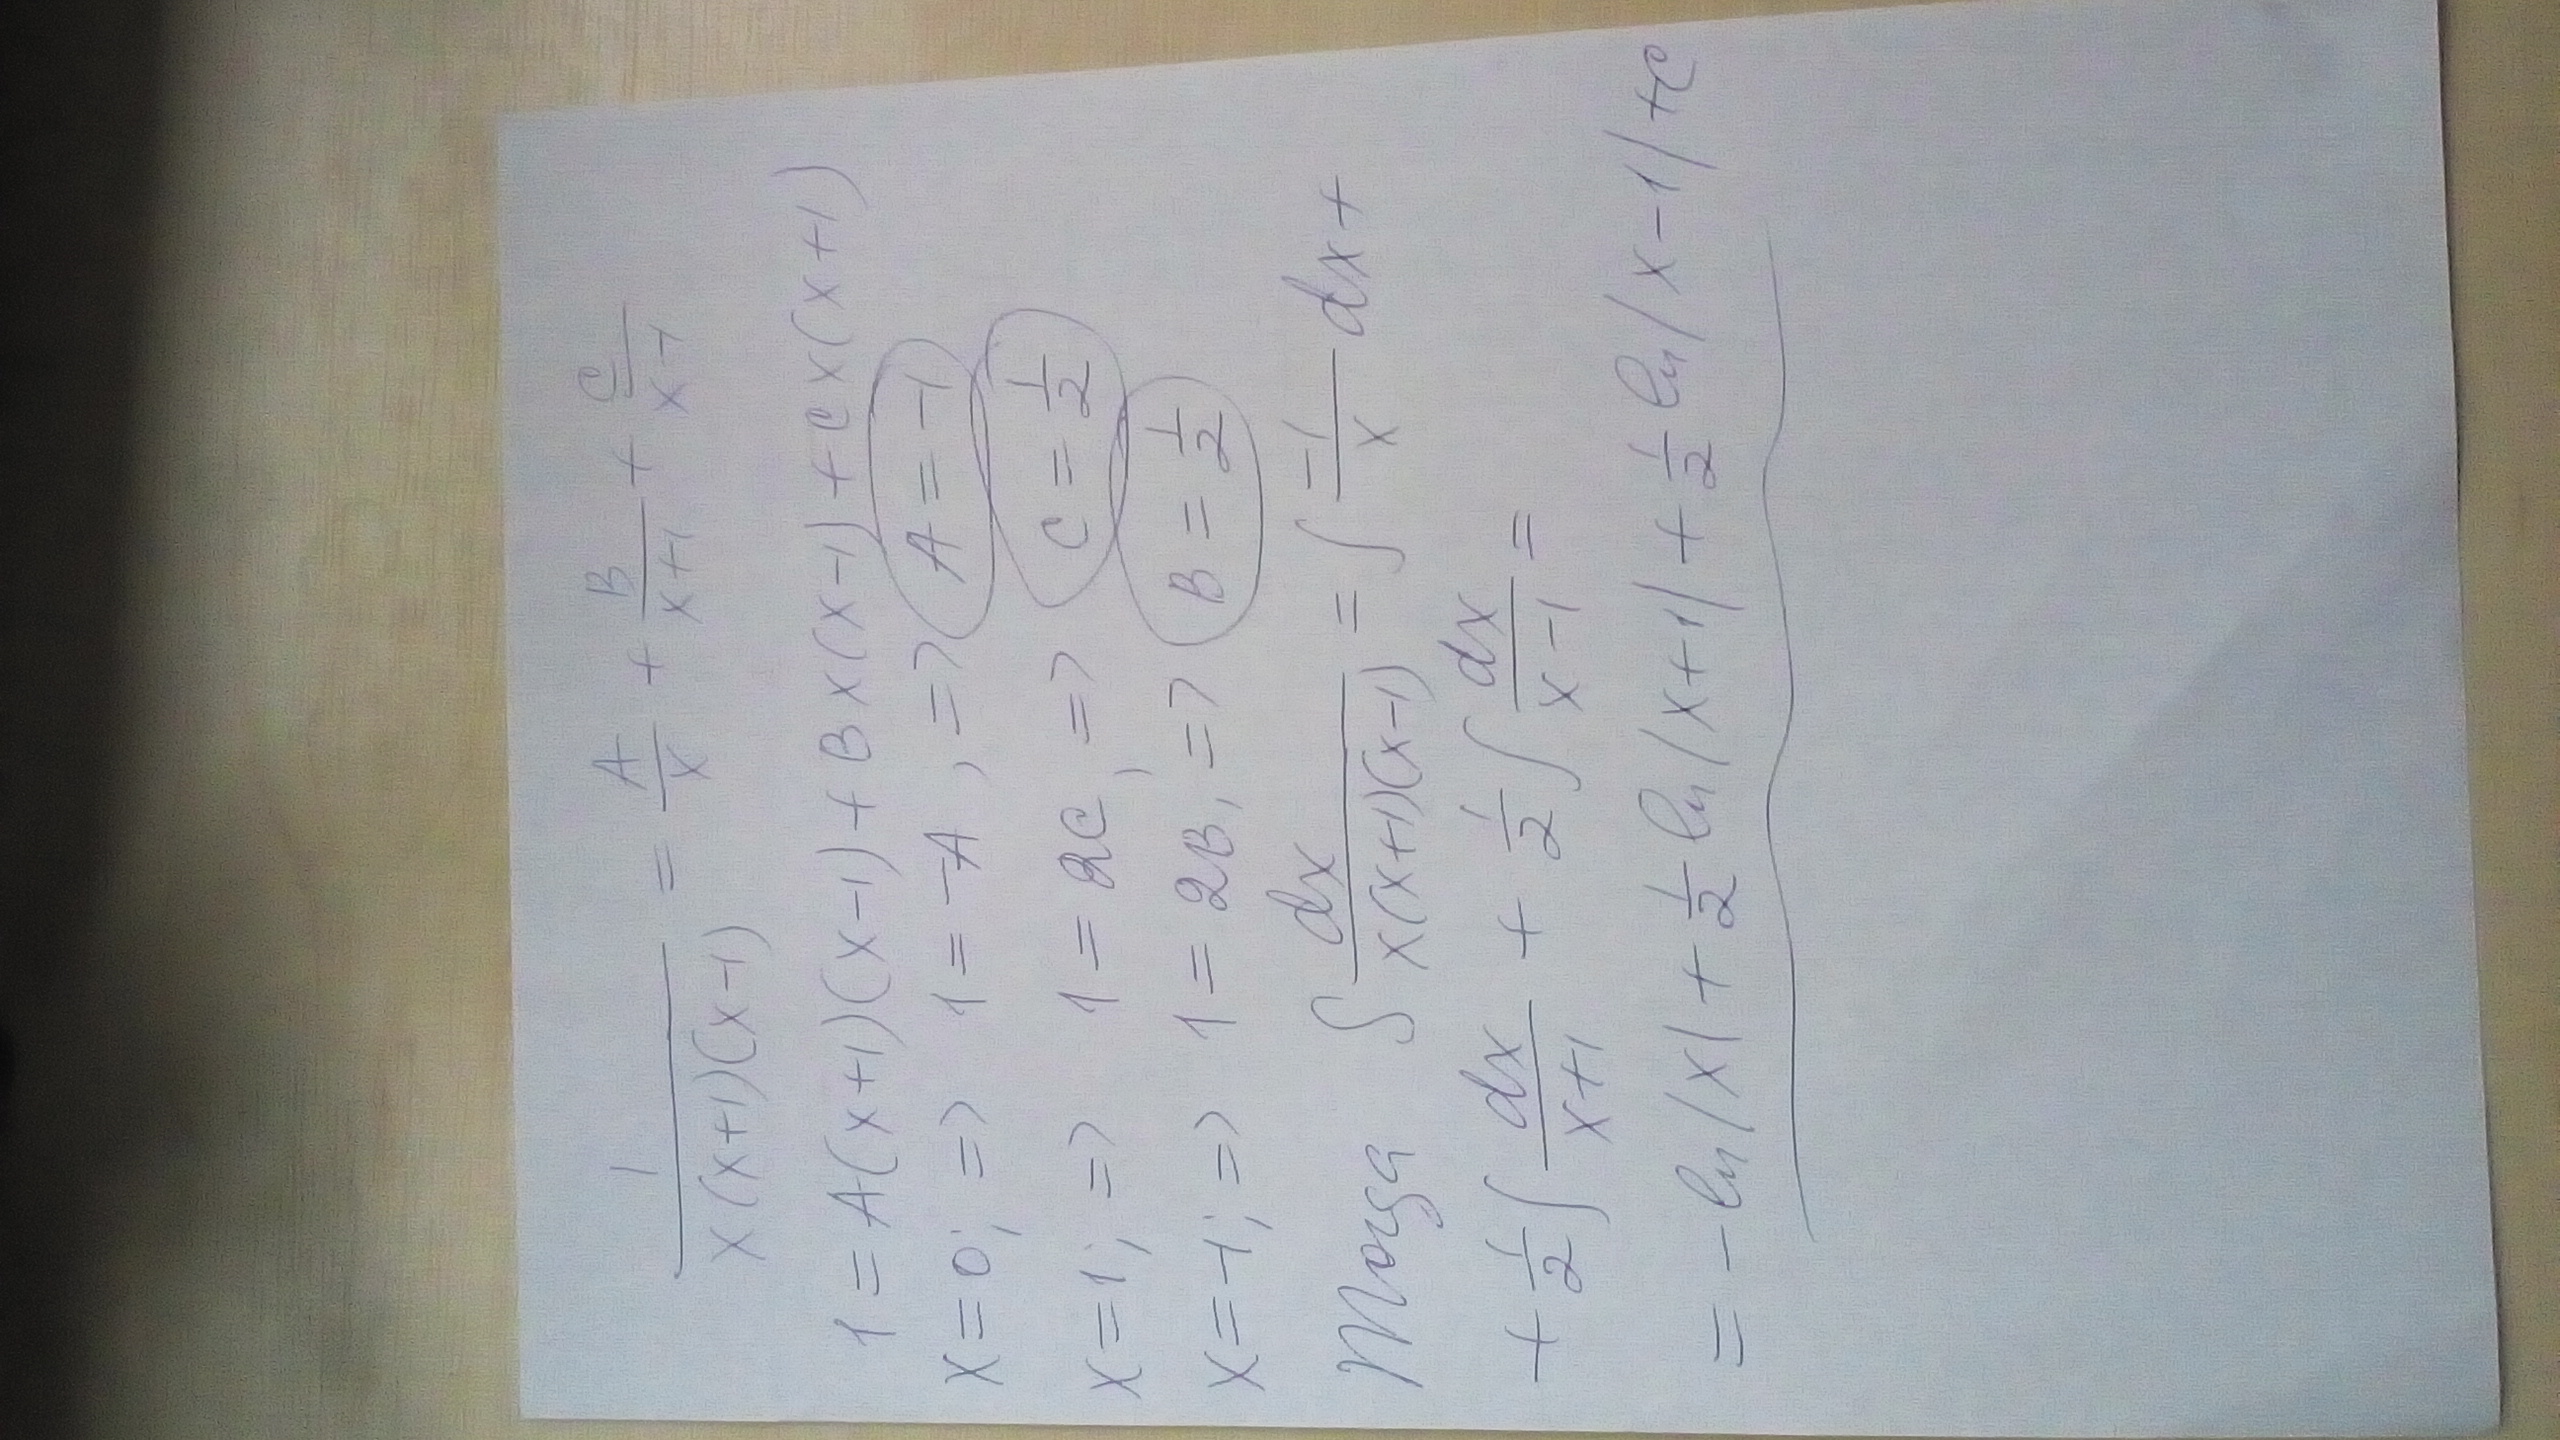 1/(x(x+1)(x-1)) = A/x + B/(x+1) + C/(x-1)
1 = A(x+1)(x-1) + Bx(x-1) + Cx(x+1)
x=0; => 1=-A, => A=-1
x=1; => 1=2C, => C=1/2
x=-1; => 1=2B, => B=1/2
Тогда ∫ dx/(x(x+1)(x-1)) = ∫ -1/x dx +
+ 1/2 ∫ dx/(x+1) + 1/2 ∫ dx/(x-1) =
= -ln|x| + 1/2 ln|x+1| + 1/2 ln|x-1| + C